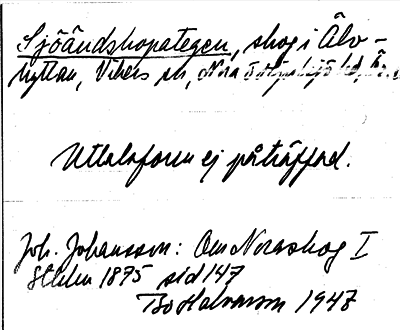 Sjöändskopategen, skog i Älv-
hyttan, Vikers sn, Nora
Uttalsform ej påträffad.
Joh. Johansson: Om Noraskog I
Sthlm 1875 sid 147
Bo Halvarsson 1947